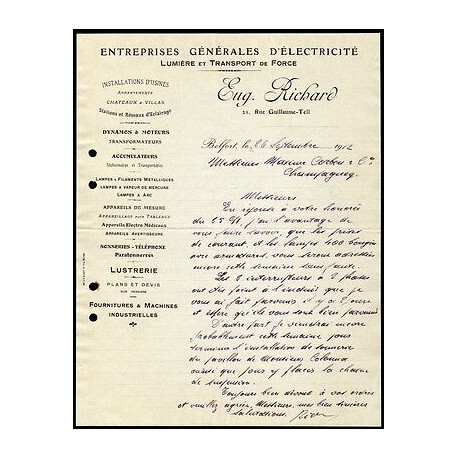 ENTREPRISES GÉNÉRALES D'ÉLECTRICITÉ
LUMIÈRE ET TRANSPORT DE FORCE
Eug. Richard
21, Rue Guillaume-Tell
INSTALLATIONS D'USINES
APPARTEMENTS
CHATEAUX & VILLAS
Stations et Réseaux d'Eclairage
DYNAMOS & MOTEURS
TRANSFORMATEURS
ACCUMULATEURS
Stationnaires et Transportables
LAMPES A FILAMENTS METALLIQUES
LAMPES A VAPEUR DE MERCURE
LAMPES A ARC
APPAREILS DE MESURE
APPAREILLAGE POUR TABLEAUX
Appareils Electro Médicaux
APPAREILS AVERTISSEURS
SONNERIES - TÉLÉPHONE
Paratonnerres
LUSTRERIE
PLANS ET DEVIS
SUR DEMANDE
FOURNITURES & MACHINES
INDUSTRIELLES
Belfort, le 26 Septembre 1912
Messieurs Maxime & Cie
Champagney
Messieurs
En réponse à votre honorée
du 25 j'ai l'avantage de
vous faire savoir, que les prises
de courant, et les lampes 400 bougies
avec armatures, vous seront adressées
encore cette semaine sans faute.
Les 2 interrupteurs à 3 phases
ont dès point à l'endroit que je
vous ai fait parvenir il y a 2 jours
et espère qu'ils vous sont bien parvenus
D'autre part je viendrai encore
probablement cette semaine pour
terminer l'installation de sonnerie
du pavillon de Monsieur Colonna
ainsi que pour y placer la chaîne
de suspension.
Toujours bien dévoué à vos ordres
et veuillez agréer, Messieurs, mes bien sincères
salutations.